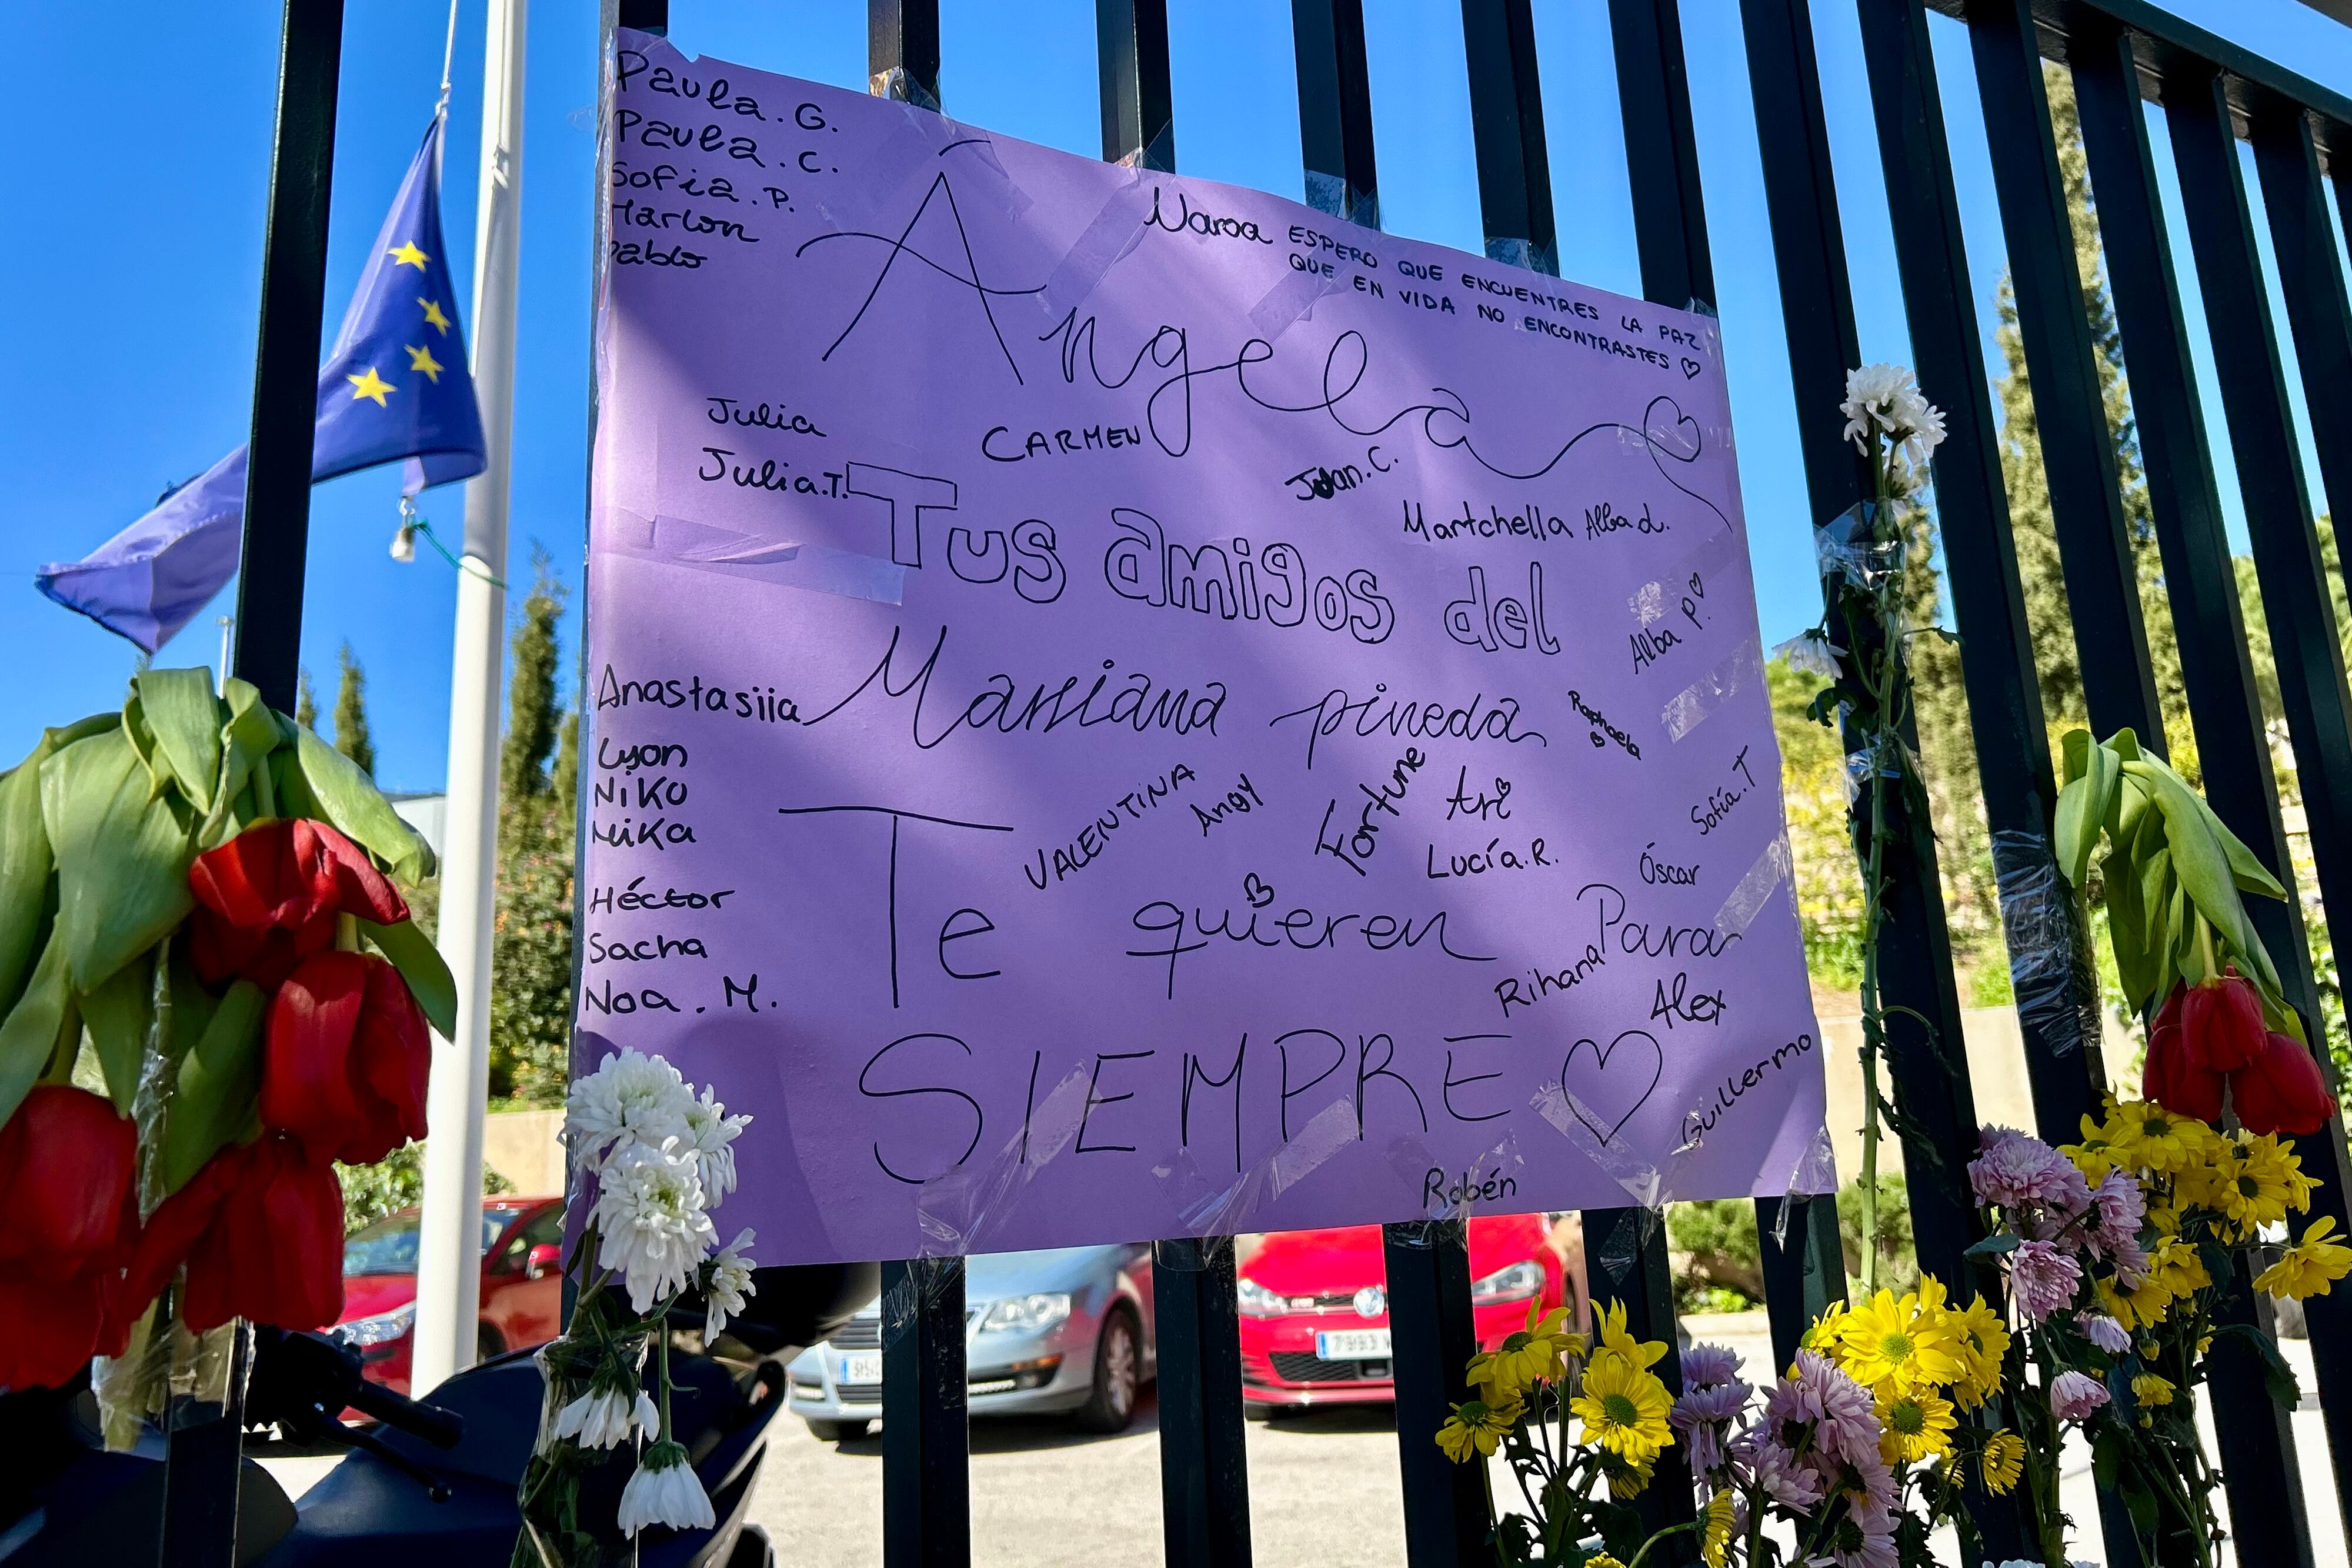 Paula. G.
Paula. C.
Sofia. P.
Marlon
Pablo
Naroa
ESPERO QUE ENCUENTRES LA PAZ
QUE EN VIDA NO ENCONTRASTES
Ángela
Julia
CARMEN
Julia.T.
Juan. C.
Martchella Alba d.
Tus amigos del
Alba P.
Anastasiia
Mariana pineda
Raphaela
Lyon
Niko
Mika
VALENTINA
Angy
Fortune
Ari
Sofía.T
Lucía.R.
Óscar
Héctor
Te quieren
Para
Sacha
Rihana
Noa. M.
Alex
SIEMPRE
Guillermo
Robén
7993